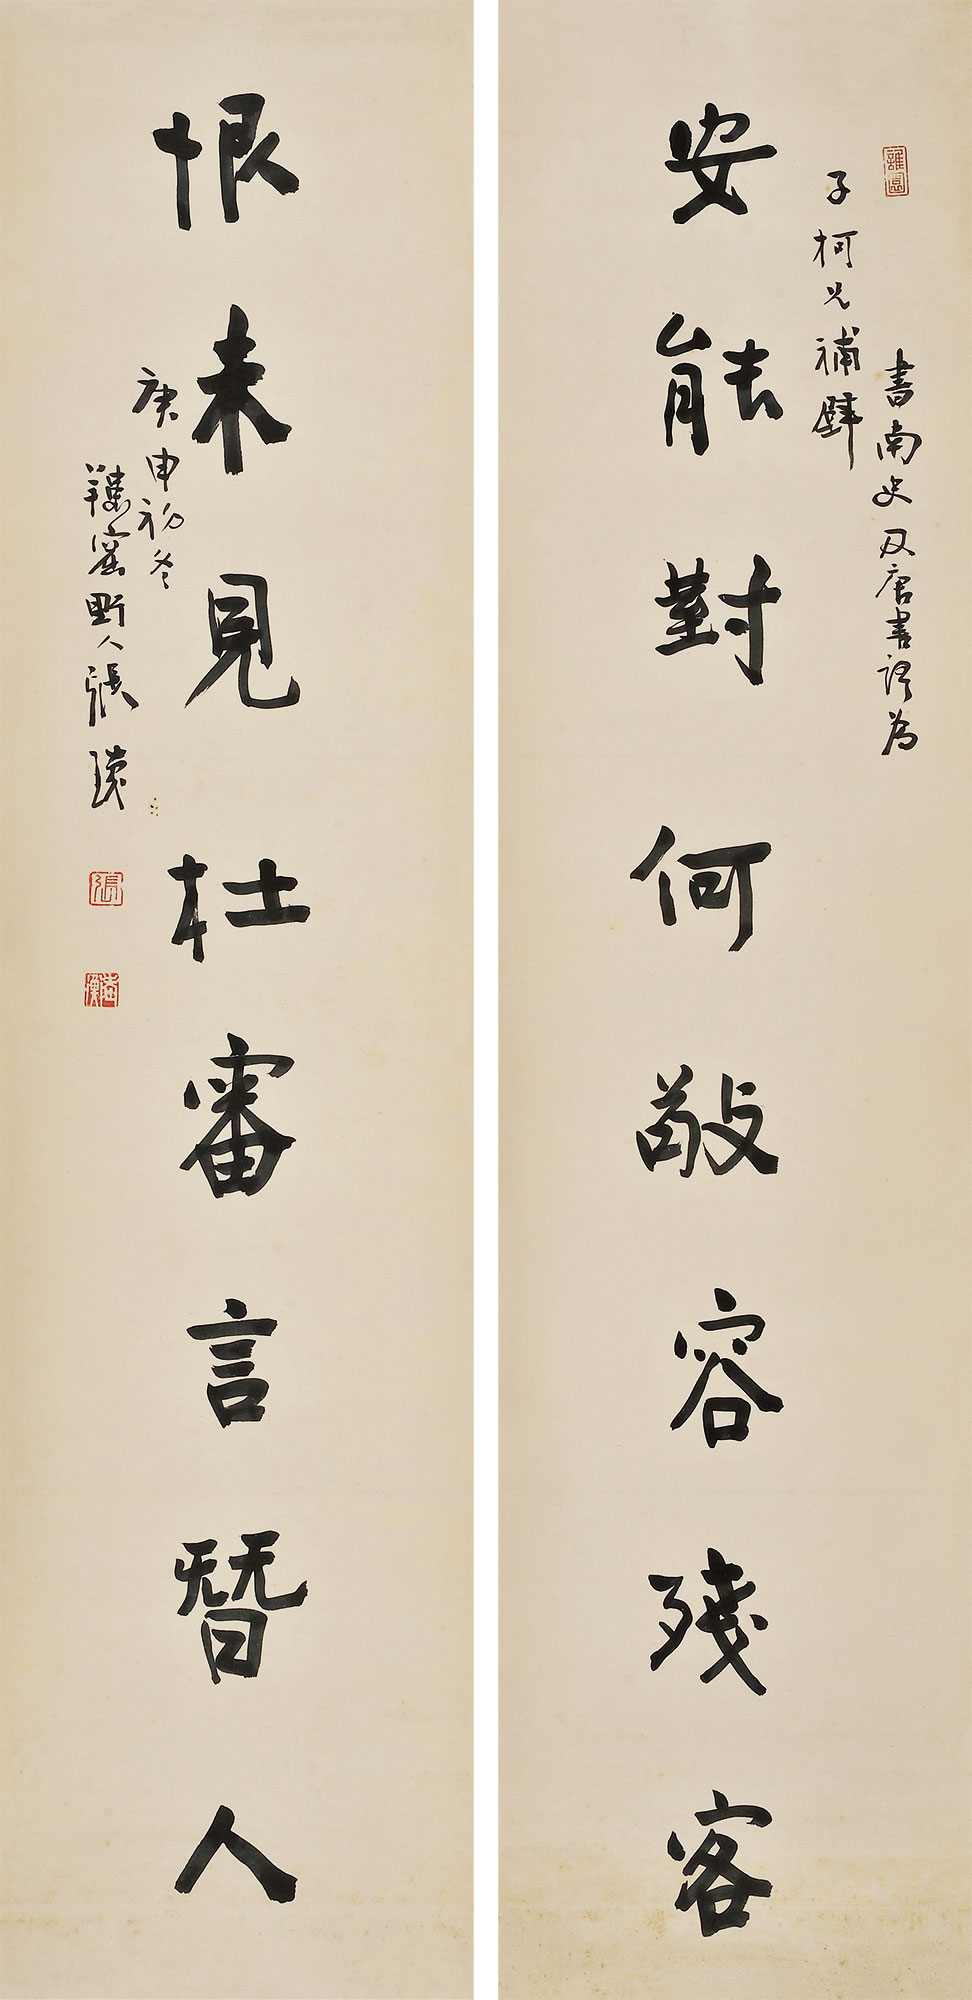 書南史及唐書語為
子柯兄補壁
安能對何敬容殘客
恨未見杜審言替人
庚申初冬
野人張
張